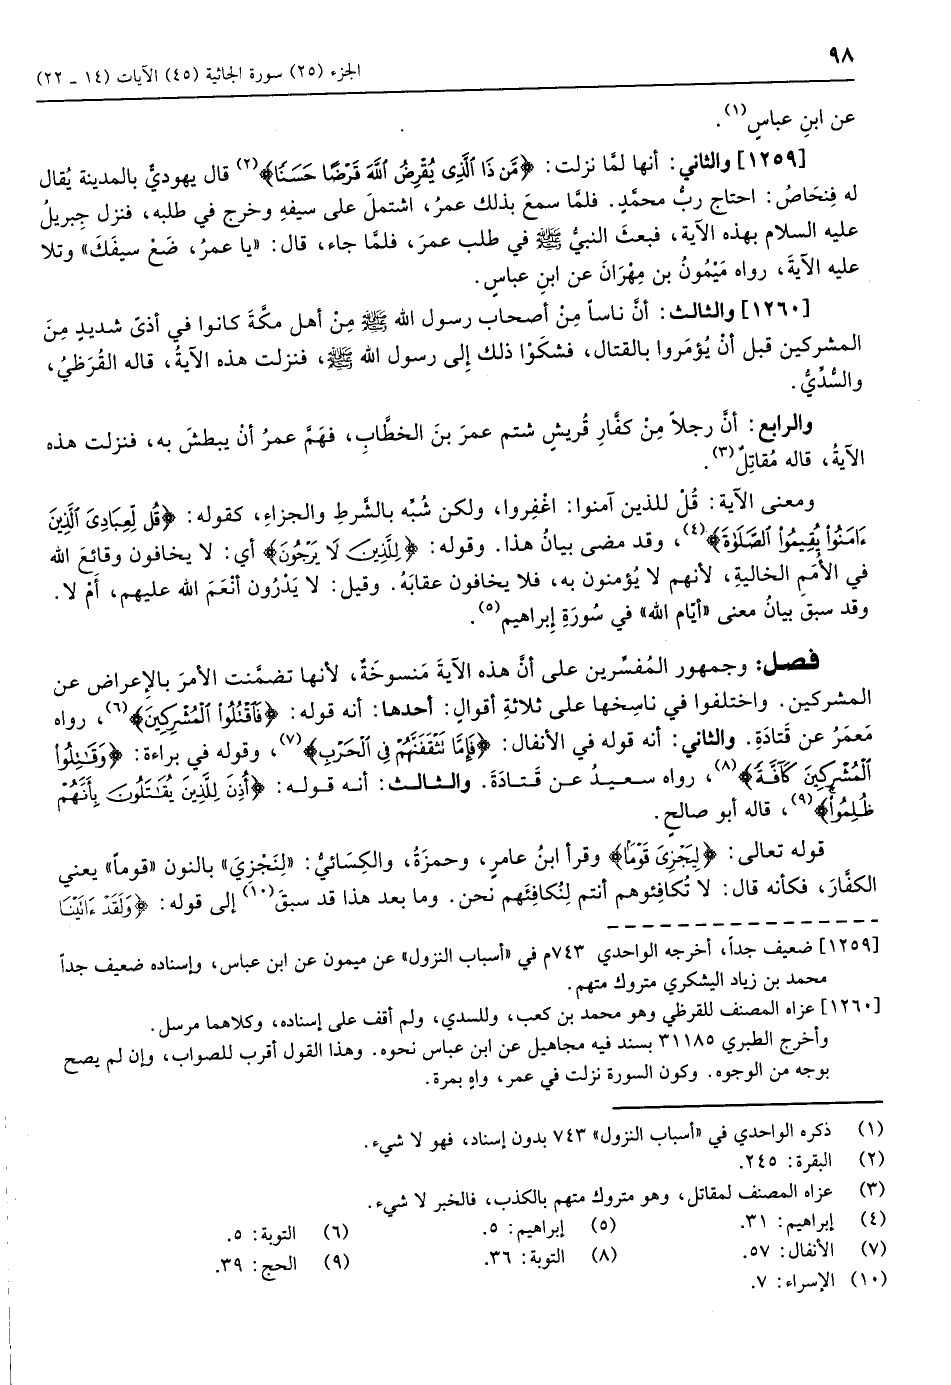 ٩٨
الجزء (٢٥) سورة الجاثية (٤٥) الآيات (١٤ ـ ٢٢)
عن ابنِ عباسٍ(١).
[١٢٥٩] والثاني: أنها لمَّا نزلت: ﴿مَّن ذَا ٱلَّذِى يُقْرِضُ ٱللَّهَ قَرْضًا حَسَنًا﴾(٢) قال يهوديٌّ بالمدينة يُقال
له فِنحَاصُ: احتاج ربُّ محمَّدٍ. فلمَّا سمعَ بذلك عمرُ، اشتملَ على سيفهِ وخرج في طلبه، فنزل جِبريلُ
عليه السلام بهذه الآية، فبعثَ النبيُّ ﷺ في طلب عمرَ، فلمَّا جاء، قال: «يا عمرُ، ضَعْ سيفَكَ» وتلا
عليه الآيةَ، رواه مَيْمُونُ بن مِهْرَانَ عن ابنِ عباسٍ.
[١٢٦٠] والثالث: أنَّ ناساً مِنْ أصحاب رسول الله ﷺ مِنْ أهل مكَّةَ كانوا في أذىً شديدٍ مِنَ
المشركين قبل أنْ يُؤمَروا بالقتال، فشكَوْا ذلك إلى رسول الله ﷺ، فنزلت هذه الآيةُ، قاله القُرَظيُّ،
والسُّدِّيُّ.
والرابع: أنَّ رجلاً مِنْ كفَّارِ قُريشٍ شتم عمرَ بنَ الخطَّابِ، فهَمَّ عمرُ أنْ يبطشَ به، فنزلت هذه
الآيةُ، قاله مُقاتِلٌ(٣).
ومعنى الآية: قُلْ للذين آمنوا: اغْفِروا، ولكن شُبِّه بالشَّرطِ والجزاءِ، كقوله: ﴿قُل لِّعِبَادِىَ ٱلَّذِينَ
ءَامَنُوا۟ يُقِيمُوا۟ ٱلصَّلَوٰةَ﴾(٤)، وقد مضى بيانُ هذا. وقوله: ﴿لِلَّذِينَ لَا يَرْجُونَ﴾ أي: لا يخافون وقائعَ الله
في الأمَمِ الخاليةِ، لأنهم لا يُؤمنون به، فلا يخافون عقابَهُ. وقيل: لا يَدْرُون أنْعَمَ الله عليهم، أمْ لا.
وقد سبق بيانُ معنى «أيَّام الله» في سُورَةِ إبراهيم(٥).
فصل: وجمهور المُفسِّرين على أنَّ هذه الآيةَ مَنسوخَةٌ، لأنها تضمَّنت الأمرَ بالإعراض عن
المشركين. واختلفوا في ناسِخها على ثلاثةِ أقوالٍ: أحدها: أنه قوله: ﴿فَٱقْتُلُوا۟ ٱلْمُشْرِكِينَ﴾(٦)، رواه
مَعمَرُ عن قتَادةِ. والثاني: أنه قوله في الأنفال: ﴿فَإِمَّا تَثْقَفَنَّهُمْ فِى ٱلْحَرْبِ﴾(٧)، وقوله في براءة: ﴿وَقَٰتِلُوا۟
ٱلْمُشْرِكِينَ كَآفَّةً﴾(٨)، رواه سعيدُ عن قتادَةَ. والثالث: أنه قوله: ﴿أُذِنَ لِلَّذِينَ يُقَٰتَلُونَ بِأَنَّهُمْ
ظُلِمُوا۟﴾(٩)، قاله أبو صالحٍ.
قوله تعالى: ﴿لِيَجْزِىَ قَوْمًا﴾ وقرأ ابنُ عامرٍ، وحمزةُ، والكِسَائيُّ: «لِنَجْزِيَ» بالنون «قوماً» يعني
الكفَّارَ، فكأنه قال: لا تُكافِئوهم أنتم لِنُكافِئَهم نحن. وما بعد هذا قد سبقَ(١٠) إلى قوله: ﴿وَلَقَدْ ءَاتَيْنَا
[١٢٥٩] ضعيف جداً، أخرجه الواحدي ٧٤٣م في «أسباب النزول» عن ميمون عن ابن عباس، وإسناده ضعيف جداً
محمد بن زياد اليشكري متروك متهم.
[١٢٦٠] عزاه المصنف للقرظي وهو محمد بن كعب، وللسدي، ولم أقف على إسناده، وكلاهما مرسل.
وأخرج الطبري ٣١١٨٥ بسند فيه مجاهيل عن ابن عباس نحوه. وهذا القول أقرب للصواب، وإن لم يصح
بوجه من الوجوه. وكون السورة نزلت في عمر، واهٍ بمرة.
(١) ذكره الواحدي في «أسباب النزول» ٧٤٣ بدون إسناد، فهو لا شيء.
(٢) البقرة: ٢٤٥.
(٣) عزاه المصنف لمقاتل، وهو متروك متهم بالكذب، فالخبر لا شيء.
(٤) إبراهيم: ٣١. (٥) إبراهيم: ٥. (٦) التوبة: ٥.
(٧) الأنفال: ٥٧. (٨) التوبة: ٣٦. (٩) الحج: ٣٩.
(١٠) الإسراء: ٧.